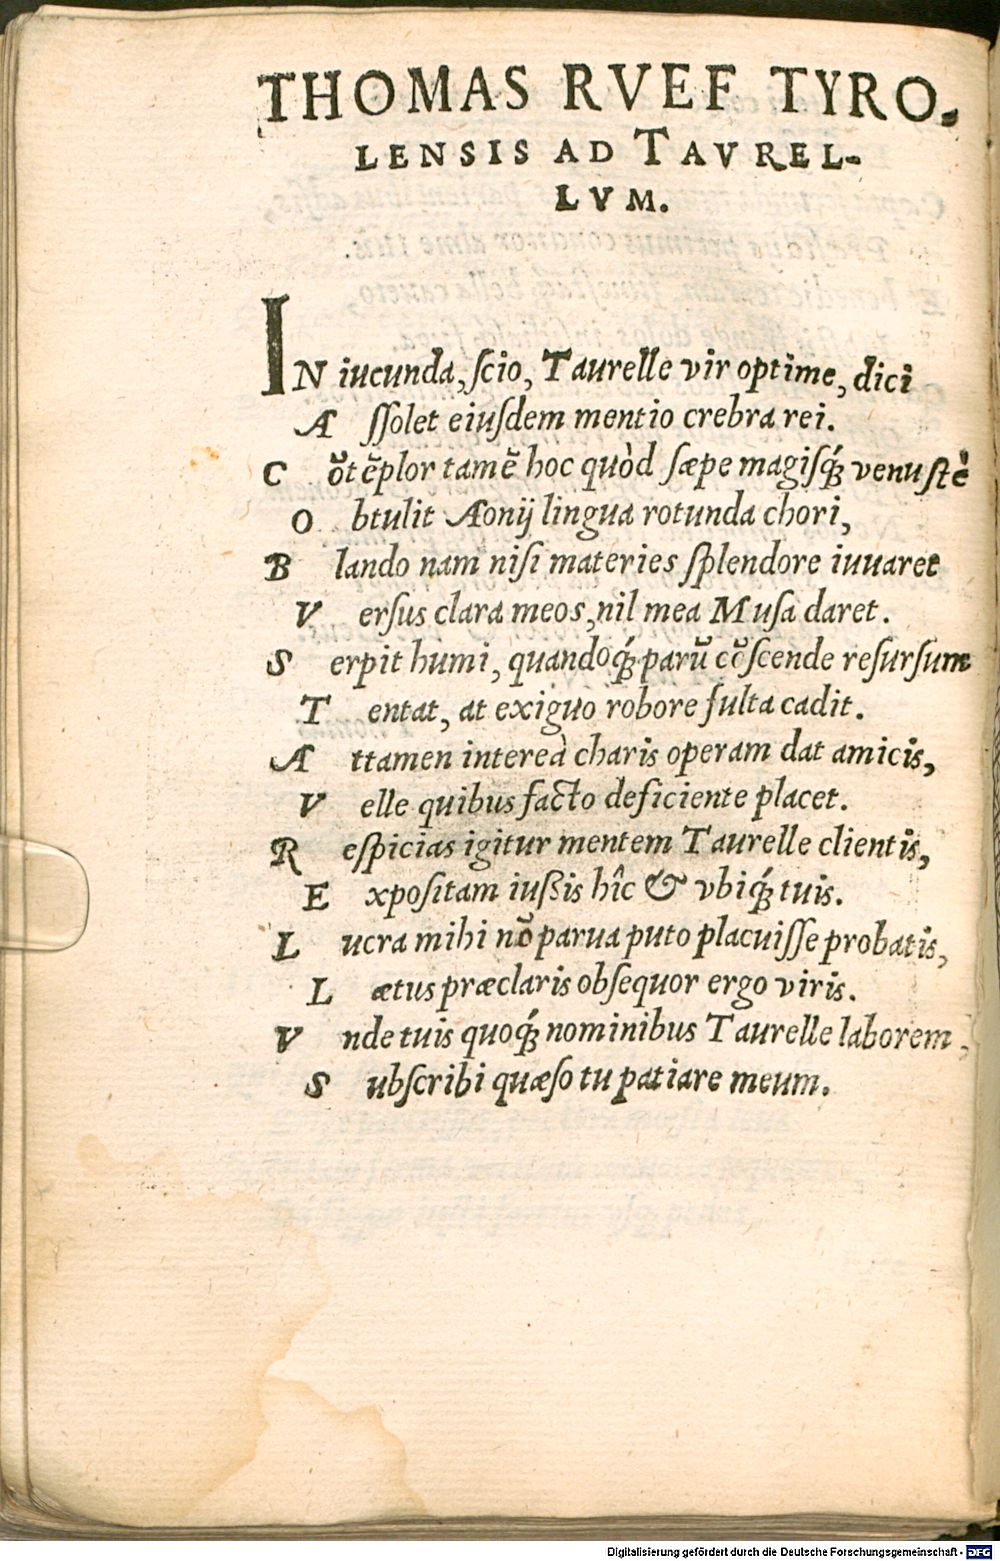 THOMAS RVEF TYRO-
LENSIS AD TAVREL-
LVM.
IN iucunda, ſcio, Taurelle vir optime, dici
Aſſolet eiuſdem mentio crebra rei.
Cōtēplor tamē hoc quòd ſæpe magiſq́; venuſtè
Obtulit Aonij lingua rotunda chori,
Blando nam niſi materies ſplendore iuuaret
Verſus clara meos, nil mea Muſa daret.
Serpit humi, quandoq́; parū cōſcende reſurſum
Tentat, at exiguo robore fulta cadit.
Attamen intereà charis operam dat amicis,
Velle quibus facto deficiente placet.
Reſpicias igitur mentem Taurelle clientis,
Expoſitam iuſsis hîc & vbiq́; tuis.
Lucra mihi nō parua puto placuiſſe probatis,
Lætus præclaris obſequor ergo viris.
Vnde tuis quoq́; nominibus Taurelle laborem,
Subſcribi quæſo tu patiare meum.
Digitalisierung gefördert durch die Deutsche Forschungsgemeinschaft - DFG